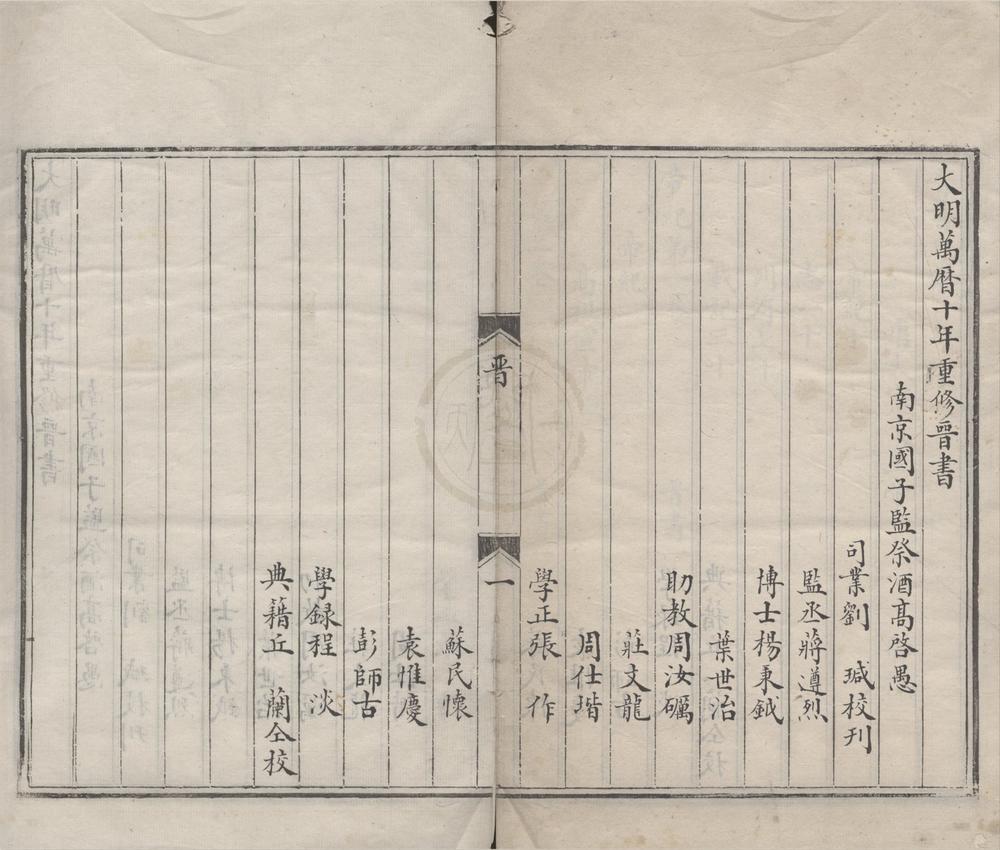 大明萬曆十年重修晉書
南京國子監祭酒高啓愚
司業劉　瑊校刊
監丞蔣遵烈
博士楊秉鉞
葉世治
助教周汝礪
莊文龍
周仕堦
學正張　作
晉
一
蘇民懷
袁惟慶
彭師古
學録程　淡
典籍丘　蘭仝校